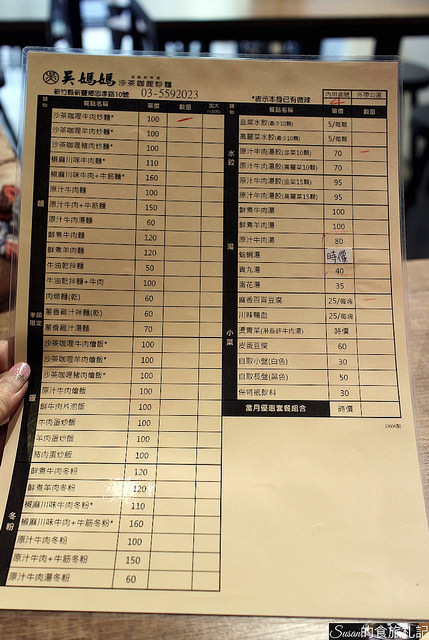 吳媽媽 沙茶咖哩炒麵
新竹縣新豐鄉忠孝路10號 03-5592023
*表示本身已有微辣
內用桌號 外帶公道
4
餐點名稱 單價 數量 加大
沙茶咖哩牛肉炒麵* 100
沙茶咖哩羊肉炒麵* 100
沙茶咖哩豬肉炒麵* 100
椒麻川味牛肉麵* 110
椒麻川味牛肉+牛筋麵* 160
原汁牛肉麵 100
原汁牛肉+牛筋麵 150
原汁牛肉湯麵 60
鮮煮牛肉麵 120
鮮煮羊肉麵 120
牛油乾拌麵 50
牛油乾拌麵+牛肉 100
肉燥麵(乾) 60
蔥香雞汁拌麵(乾) 60
蔥香雞汁湯麵 70
季節限定
麵
沙茶咖哩牛肉燴飯* 100
沙茶咖哩羊肉燴飯* 100
沙茶咖哩豬肉燴飯* 100
原汁牛肉燴飯 100
鮮牛肉片泡飯 100
牛肉蛋炒飯 100
羊肉蛋炒飯 100
豬肉蛋炒飯 100
飯
鮮煮牛肉冬粉 120
鮮煮羊肉冬粉 120
椒麻川味牛肉冬粉* 110
椒麻川味牛肉+牛筋冬粉* 160
原汁牛肉冬粉 100
原汁牛肉+牛筋冬粉 150
原汁牛肉湯冬粉 60
冬粉
餐點名稱 單價 數量
韭菜水餃(最少10顆) 5/每顆
高麗菜水餃(最少10顆) 5/每顆
原汁牛肉湯餃(韭菜10顆) 70
原汁牛肉湯餃(高麗菜10顆) 70
原汁牛肉湯餃(韭菜15顆) 95
原汁牛肉湯餃(高麗菜15顆) 95
水餃
鮮煮牛肉湯 100
鮮煮羊肉湯 100
原汁牛肉湯 80
蛤蜊湯 時價
貢丸湯 40
蛋花湯 35
湯
麻香百頁豆腐 25/每塊
川辣鴨血 25/每塊
燙青菜(淋香醇牛肉湯) 時價
皮蛋豆腐 60
自取小盤(白色) 30
自取長盤(黑色) 50
保特瓶飲料 30
小菜
當月優惠套餐組合 時價
Susan的食旅札記